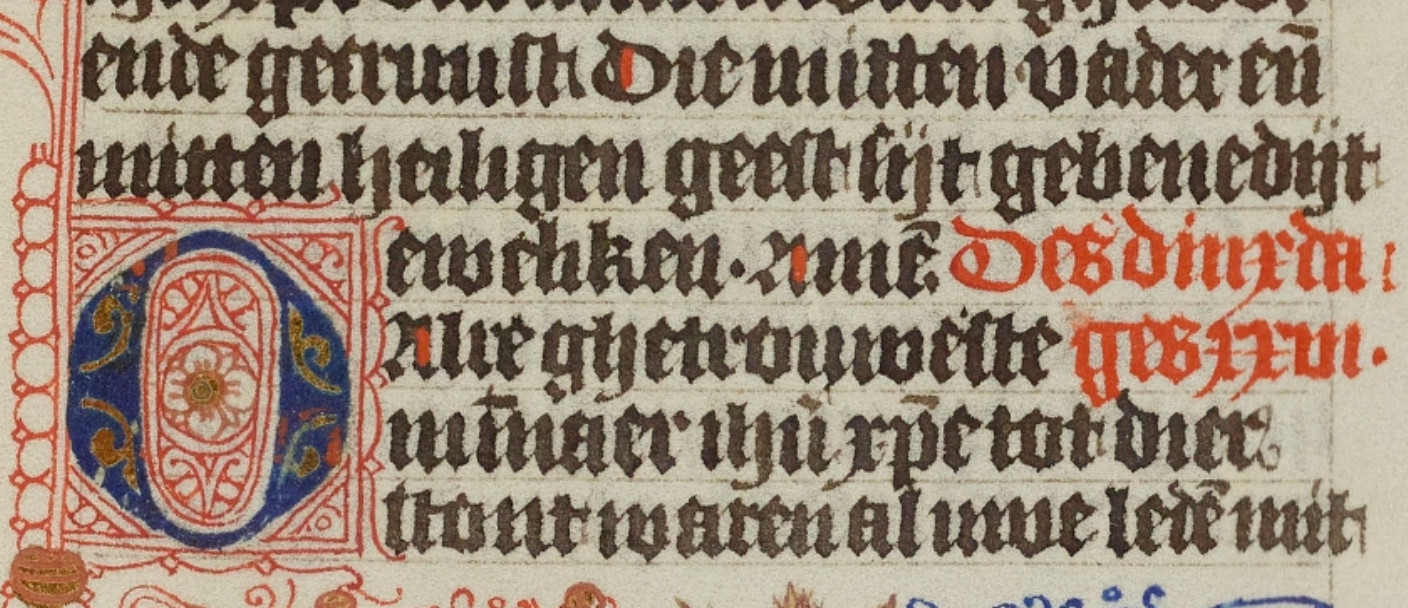 ende getruust Die mitten vader eñ
mitten heiligen geest sijt gebenedijt
ewelikeu. Amē. Des dinxda
O Alre ghetrouweste ges xxvi.
mīnaer ihū xp̄e tot dier
stont waren al uwe ledē mit